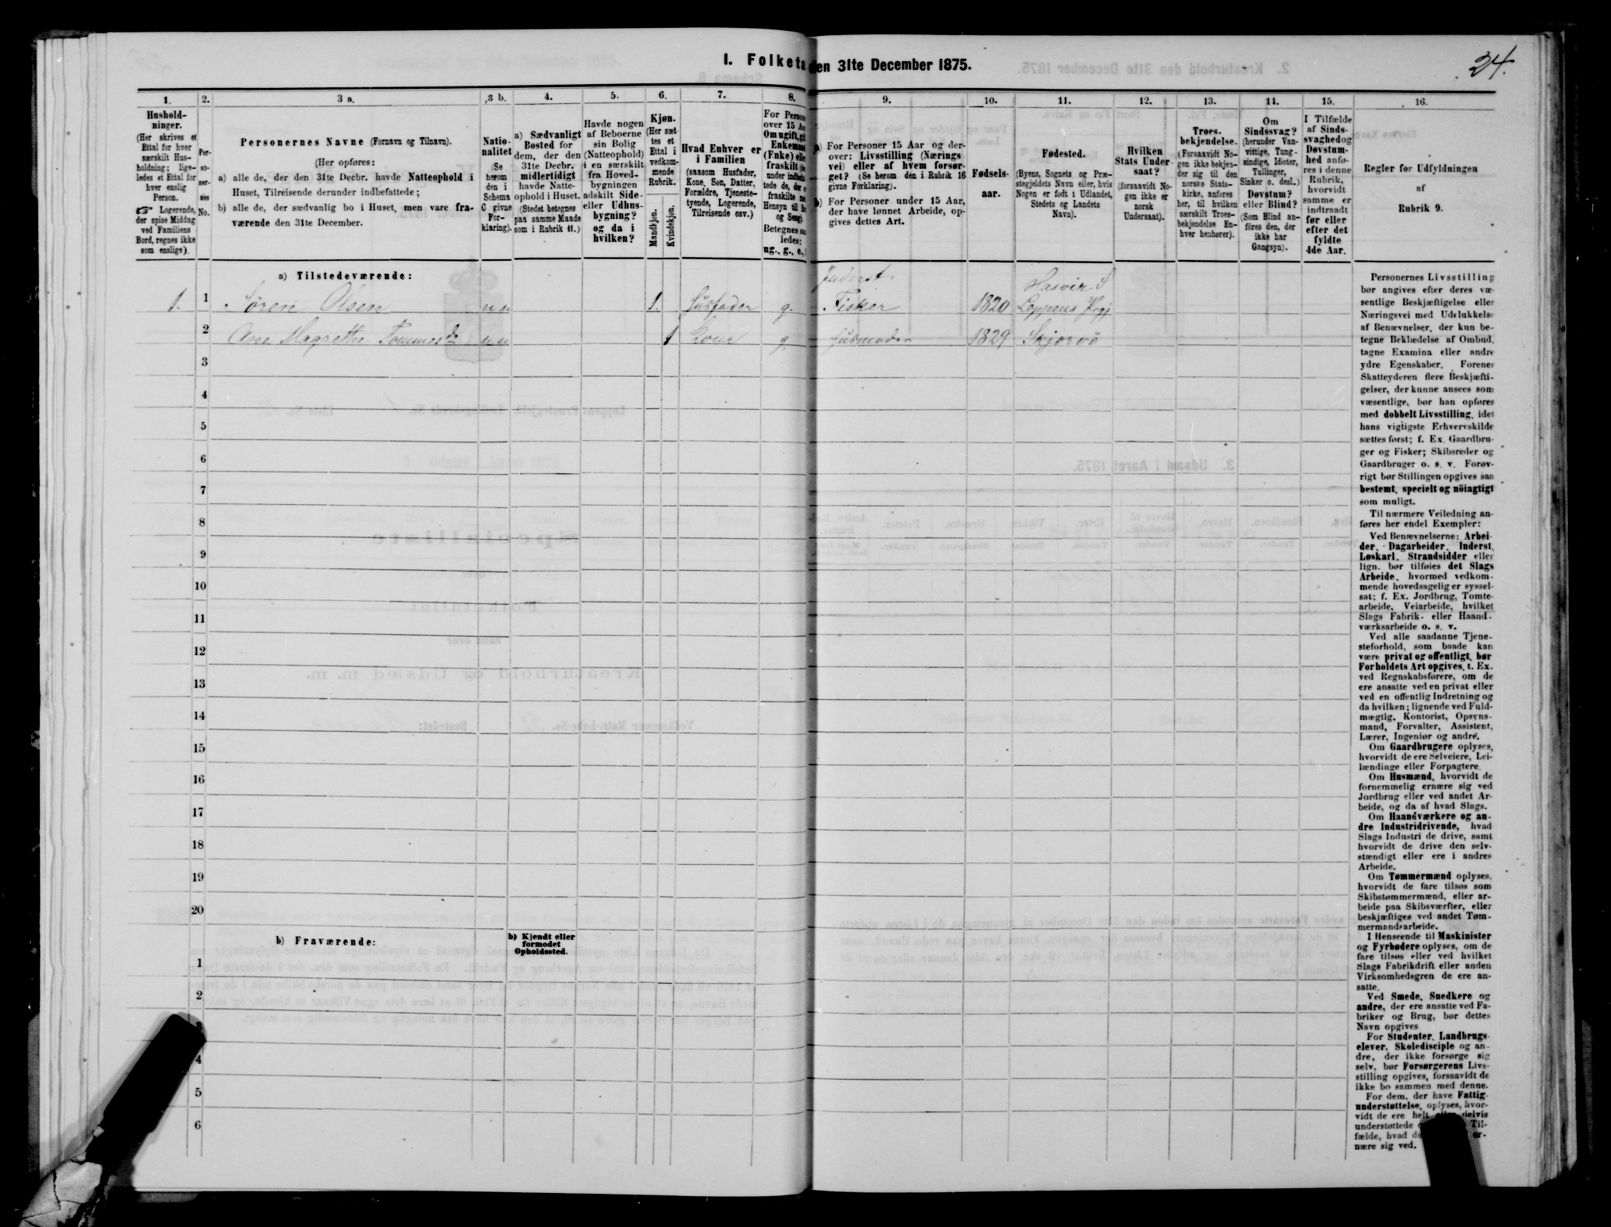 24.
I. Folketa en 31te December 1875.
1. 2. 3 a. 3 b. 4. 5. 6. 7. 8. 9. 10. 11. 12. 13. 14. 15. 16.
Hushold-
ninger.
(Her skrives et
Ettal for hver
særskilt Hus-
holdning; lige-
ledes et Ettal for
hver enslig
Person.
☞ Logerende,
der spise Middag
ved Familiens
Bord, regnes ikke
som enslige).
Per-
so-
ner-
nes
No.
Personernes Navne (Fornavn og Tilnavn).
(Her opføres:
a) alle de, der den 31te Decbr. havde Natteophold i
Huset, Tilreisende derunder indbefattede;
b) alle de, der sædvanlig bo i Huset, men vare fra-
værende den 31te December.
Natio-
nalitet
(Se
herom
den i
Schema
C givne
For-
klaring).
a) Sædvanligt
Bosted for
dem, der den
31te Decbr.
midlertidigt
havde Natte-
ophold i Huset.
(Stedet betegnes
paa samme Maade
som i Rubrik 11.)
Havde nogen
af Beboerne
sin Bolig
(Natteophold)
i en særskilt
fra Hoved-
bygningen
adskilt Side-
eller Udhus-
bygning?
og da i
hvilken?
Kjøn.
(Her sæt-
tes et
Ettal i
vedkom-
mende
Rubrik.
Mandkjøn.
Kvindekjøn.
Hvad Enhver er
i Familien
(saasom Husfader,
Kone, Søn, Datter,
Forældre, Tjeneste-
tyende, Logerende,
Tilreisende osv.)
For Perso
over 15 A
Om ugift, g
Enkema
(Enke) el
fraskilt
under indb
tede de, der
fraskilte
Hensyn til B
og Seng
Betegnes
ledes:
ug., g., e.,
a) For Personer 15 Aar og der-
over: Livsstilling (Nærings
vei) eller af hvem forsør-
get? (Se herom den i Rubrik 16
givne Forklaring).
b) For Personer under 15 Aar,
der have lønnet Arbeide, op-
gives dettes Art.
Fødsels-
aar.
Fødested.
(Byens, Sognets og Præ-
stegjeldets Navn eller, hvis
Nogen er født i Udlandet,
Stedets og Landets
Navn).
Hvilken
Stats Under-
saat?
(forsaavidt No-
gen ikke er
norsk
Undersaat).
Troes-
bekjendelse.
(Forsaavidt No-
gen ikke bekjen-
der sig til den
norske Stats-
kirke, anføres
her, til hvilken
særskilt Troes-
bekjendelse En-
hver henhører).
Om
Sindssvag?
(herunder Van-
vittige, Tung-
sindige, Idioter,
Tullinger,
Sinker o. desl.)
Døvstum?
eller Blind?
(Som Blind an-
føres den, der
ikke har
Gangsyn).
I Tilfælde
af Sinds-
svaghed og
Døvstum-
hed anfø-
res i denne
Rubrik,
hvorvidt
samme er
indtraadt
før eller
efter det
fyldte
4de Aar.
Regler for Udfyldningen
af
Rubrik 9.
a) Tilstedeværende:
Inderst. Hasvig S
1. 1 Søren Olsen n n 1. Husfader g. Fisker 1820 Loppens Prgj
2 Ane Magrethe Tommesd. n n 1 Kone g Husmoder 1829 Skjervø
3
4
5
6
7
8
9
10
11
12
13
14
15
16
17
18
19
20
b) Fraværende:
b) Kjendt eller
formodet
Opholdssted.
1
2
4
5
6
Personernes Livsstilling
bør angives efter deres væ-
sentlige Beskjæftigelse eller
Næringsvei med Udelukkelse
af Benævnelser, der kun be-
tegne Beklædelse af Ombud,
tagne Examina eller andre
ydre Egenskaber. Forener
Skatteyderen flere Beskjæfti-
gelser, der kunne ansees som
væsentlige, bør han opføres
med dobbelt Livsstilling, idet
hans vigtigste Erhvervskilde
sættes først; f. Ex. Gaardbru-
ger og Fisker; Skibsreder og
Gaardbruger o. s. v. Forøv-
rigt bør Stillingen opgives saa
bestemt, specielt og nöiagtigt
som muligt.
Til nærmere Veiledning an-
føres her endel Exempler:
Ved Benævnelserne: Arbei-
der, Dagarbeider, Inderst,
Løskarl, Strandsidder eller
lign. bør tilføies det Slags
Arbeide, hvormed vedkom-
mende hovedsagelig er syssel-
sat; f. Ex. Jordbrug, Tomte-
arbeide, Veiarbeide, hvilket
Slags Fabrik- eller Haand-
værksarbeide o. s. v.
Ved alle saadanne Tjene-
steforhold, som baade kan
være privat og offentligt, bør
Forholdets Art opgives, t. Ex.
ved Regnskabsførere, om de
ere ansatte ved en privat eller
ved en offentlig Indretning og
da hvilken; lignende ved Fuld-
mægtig, Kontorist, Opsyns-
mand, Forvalter, Assistent,
Lærer, Ingeniør og andre.
Om Gaardbrugere oplyses,
hvorvidt de ere Selveiere, Lei-
lændinge eller Forpagtere.
Om Husmænd, hvorvidt de
fornemmelig ernære sig ved
Jordbrug eller ved andet Ar-
beide, og da af hvad Slags.
Om Haandværkere og an-
dre Industridrivende, hvad
Slags Industri de drive, samt
hvorvidt de drive den selv-
stændigt eller ere i andres
Arbeide.
Om Tømmermænd oplyses,
hvorvidt de fare tilsøs som
Skibstømmermænd, eller ar-
beide paa Skibsværfter, eller
beskjæftiges ved andet Tøm-
mermandsarbeide.
I Henseende til Maskinister
og Fyrbødere oplyses, om de
fare tilsøs eller ved hvilket
Slags Fabrikdrift eller anden
Virksomhedsgren de ere an-
satte.
Ved Smede, Snedkere og
andre, der ere ansatte ved Fa-
briker og Brug, bør dettes
Navn opgives
For Studenter, Landbrugs-
elever, Skoledisciple og an-
dre, der ikke forsørge sig
selv, bør Forsørgerens Livs-
stilling opgives, forsaavidt de
ikke bo sammen med denne.
For dem, der have Fattig
understøttelse, oplyses, hvor-
vidt de ere helt eller delvis
understøttede Til-
fælde, hvad de er-
nære sig ved.